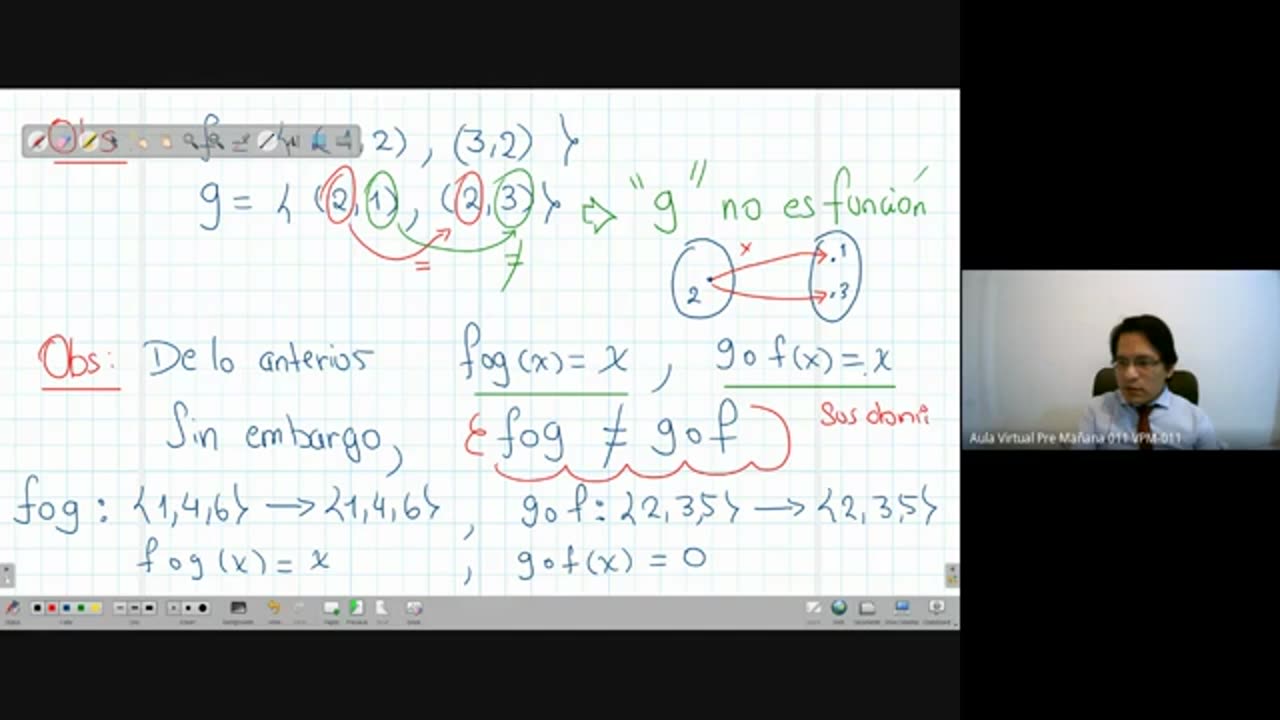 Obs f 2) , (3,2) }
g = { (2,1), (2,3) } ⇨ "g" no es función
= ≠
x
2 .1
.3
Obs: De lo anterior fog(x) = x , gof(x) = x
Sin embargo, fog ≠ gof Sus domi
fog : {1,4,6} → {1,4,6} , gof : {2,3,5} → {2,3,5}
fog(x) = x , gof(x) = 0
Aula Virtual Pre Mañana 011 VPM-011